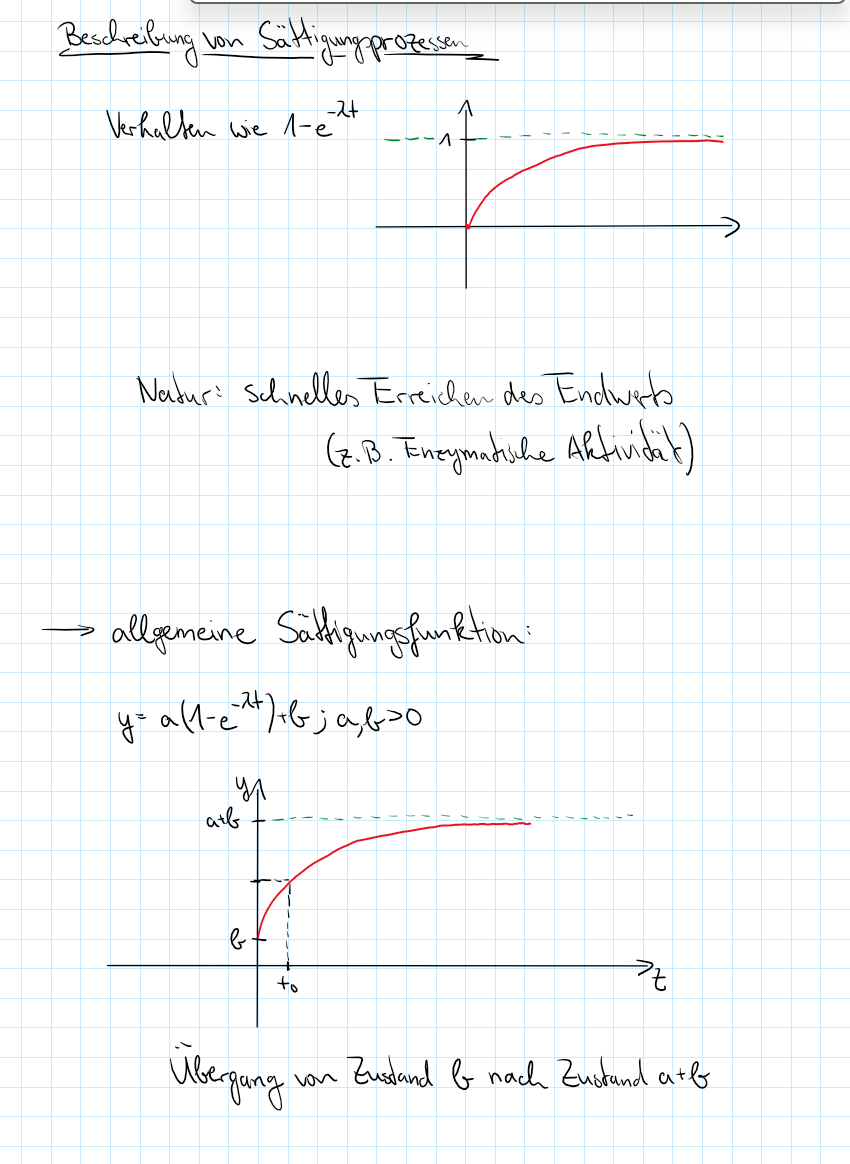 Beschreibung von Sättigungsprozessen
Verhalten wie 1-e^-λt
1
Natur: schnelles Erreichen des Endwerts
(z.B. Enzymatische Aktivität)
→ allgemeine Sättigungsfunktion:
y= a(1-e^-λt)+b ; a,b>0
y
a+b
b
t₀
t
Übergang von Zustand b nach Zustand a+b